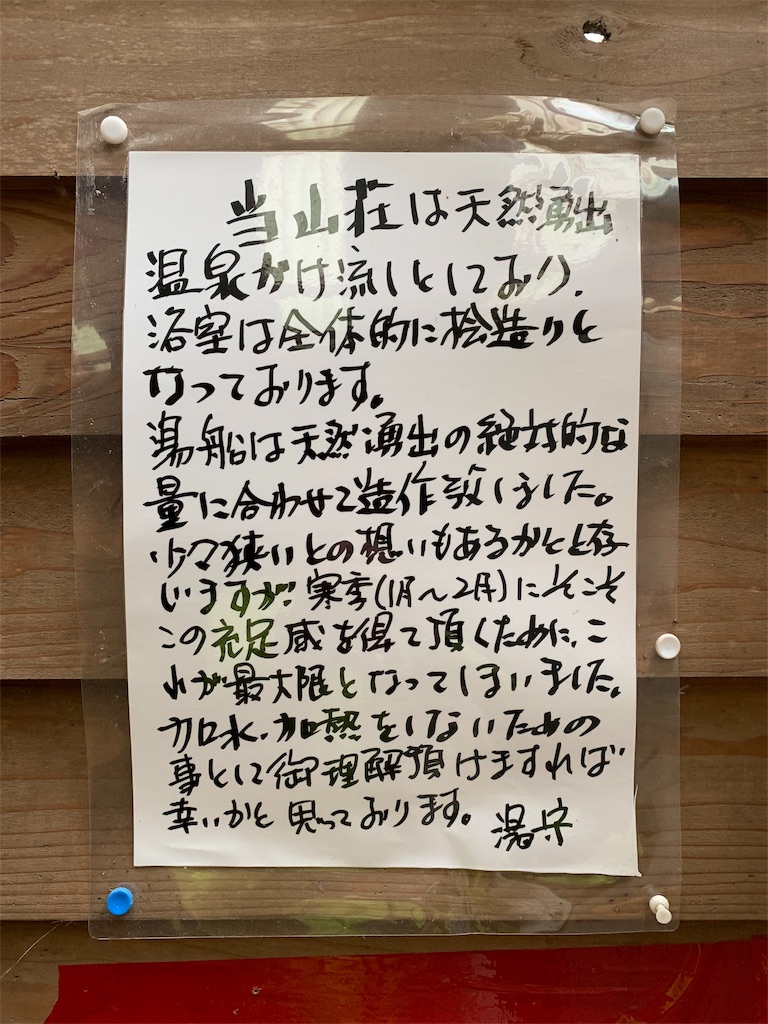 当山荘は天然湧出
温泉かけ流しとしており、
浴室は全体的に桧造りと
なっております。
湯船は天然湧出の絶対的な
量に合わせて造作致しました。
少々狭いとの想いもあるかと存
いますが、寒季(1月～2月)にそこそ
この充足感を得て頂くために、こ
れが最大限となってしまいました。
加水・加熱をしないための
事として御理解頂けますれば
幸いかと思っております。 湯守